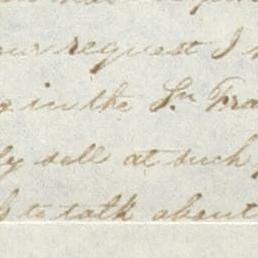 our request I
in the Sn Fra
ly sell at such
to talk about